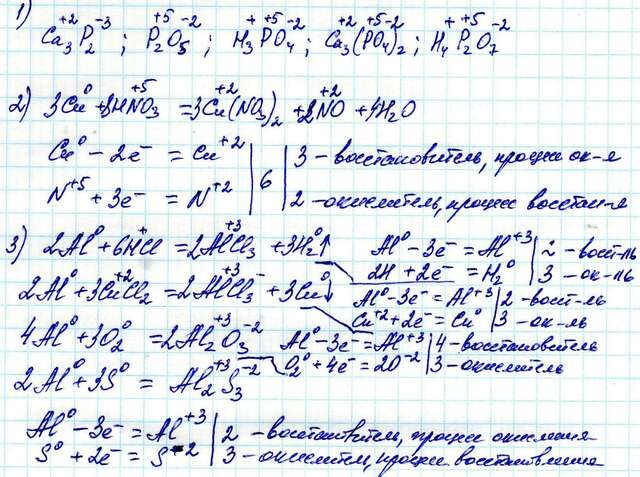 1) Ca₃⁺²P₂⁻³ ; P₂⁺⁵O₅⁻² ; H₃⁺P⁺⁵O₄⁻² ; Ca₃⁺²(P⁺⁵O₄⁻²)₂ ; H₄⁺P₂⁺⁵O₇⁻²
2) 3Cu⁰ + 8HN⁺⁵O₃ = 3Cu⁺²(NO₃)₂ + 2N⁺²O + 4H₂O
Cu⁰ - 2e⁻ = Cu⁺² | 6 | 3 - восстановитель, процесс ок-я
N⁺⁵ + 3e⁻ = N⁺² | 2 - окислитель, процесс восстан-я
3) 2Al⁰ + 6H⁺Cl = 2Al⁺³Cl₃ + 3H₂⁰↑ Al⁰ - 3e⁻ = Al⁺³ | 2 - восст-ль
2H + 2e⁻ = H₂⁰ | 3 - ок-ль
2Al⁰ + 3Cu⁺²Cl₂ = 2Al⁺³Cl₃⁻ + 3Cu⁰↓ Al⁰ - 3e⁻ = Al⁺³ | 2 - восст-ль
Cu⁺² + 2e⁻ = Cu⁰ | 3 - ок-ль
4Al⁰ + 3O₂⁰ = 2Al₂⁺³O₃⁻² Al⁰ - 3e⁻ = Al⁺³ | 4 - восстановитель
O₂⁰ + 4e⁻ = 2O⁻² | 3 - окислитель
2Al⁰ + 3S⁰ = Al₂⁺³S₃⁻²
Al⁰ - 3e⁻ = Al⁺³ | 2 - восстановитель, процесс окисления
S⁰ + 2e⁻ = S⁻² | 3 - окислител, процесс восстановления